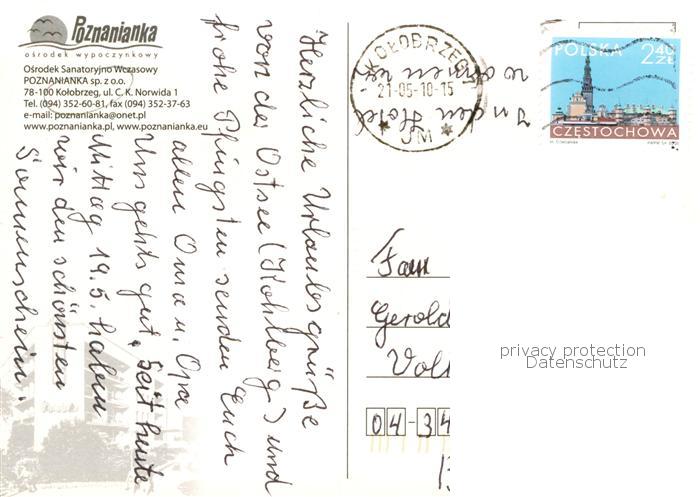 Poznanianka
ośrodek wypoczynkowy
Ośrodek Sanatoryjno Wczasowy
POZNANIANKA sp. z o.o.
78-100 Kołobrzeg, ul. C. K. Norwida 1
Tel. (094) 352-60-81, fax (094) 352-37-63
e-mail: poznanianka@onet.pl
www.poznanianka.pl, www.poznanianka.eu
Herzliche Urlaubsgrüße
von der Ostsee (Kohlberg) und
frohe Pfingsten senden Euch
allen Oma u. Opa
Uns gehts gut. Seit heute
Mittag 19.5. haben
wir den schönsten
Sonnenschein.
KOŁOBRZEG
21-05-10-15
UM
In den Hotel
wohnen wir
POLSKA 2,40 ZŁ
CZĘSTOCHOWA
Fam
Gerold
Vol
04-34
privacy protection
Datenschutz